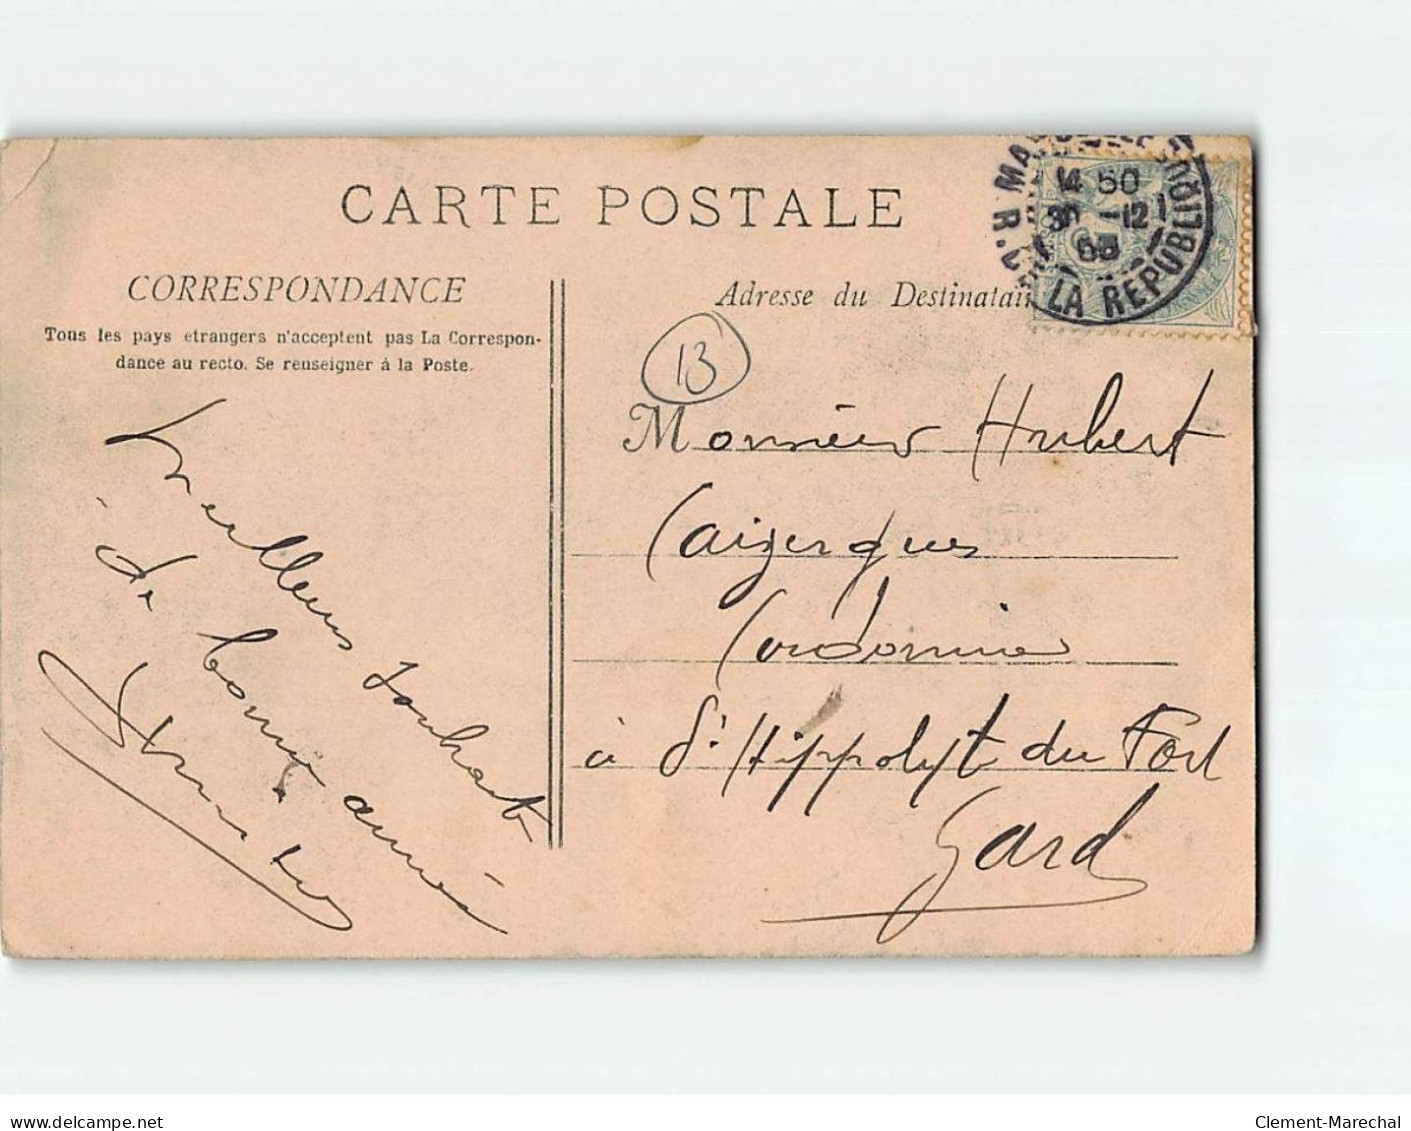 CARTE POSTALE
CORRESPONDANCE
Tous les pays etrangers n'acceptent pas La Correspon-
dance au recto. Se renseigner à la Poste.
Adresse du Destinatai
14 50
30 -12
LA REPUBLIQU
13
Monsieur Hubert
Caizergues
Cordonnier
à St Hippolyt du Fort
Gard
Meilleurs souhaits
de
bonne année
www.delcampe.net
Clement-Marechal